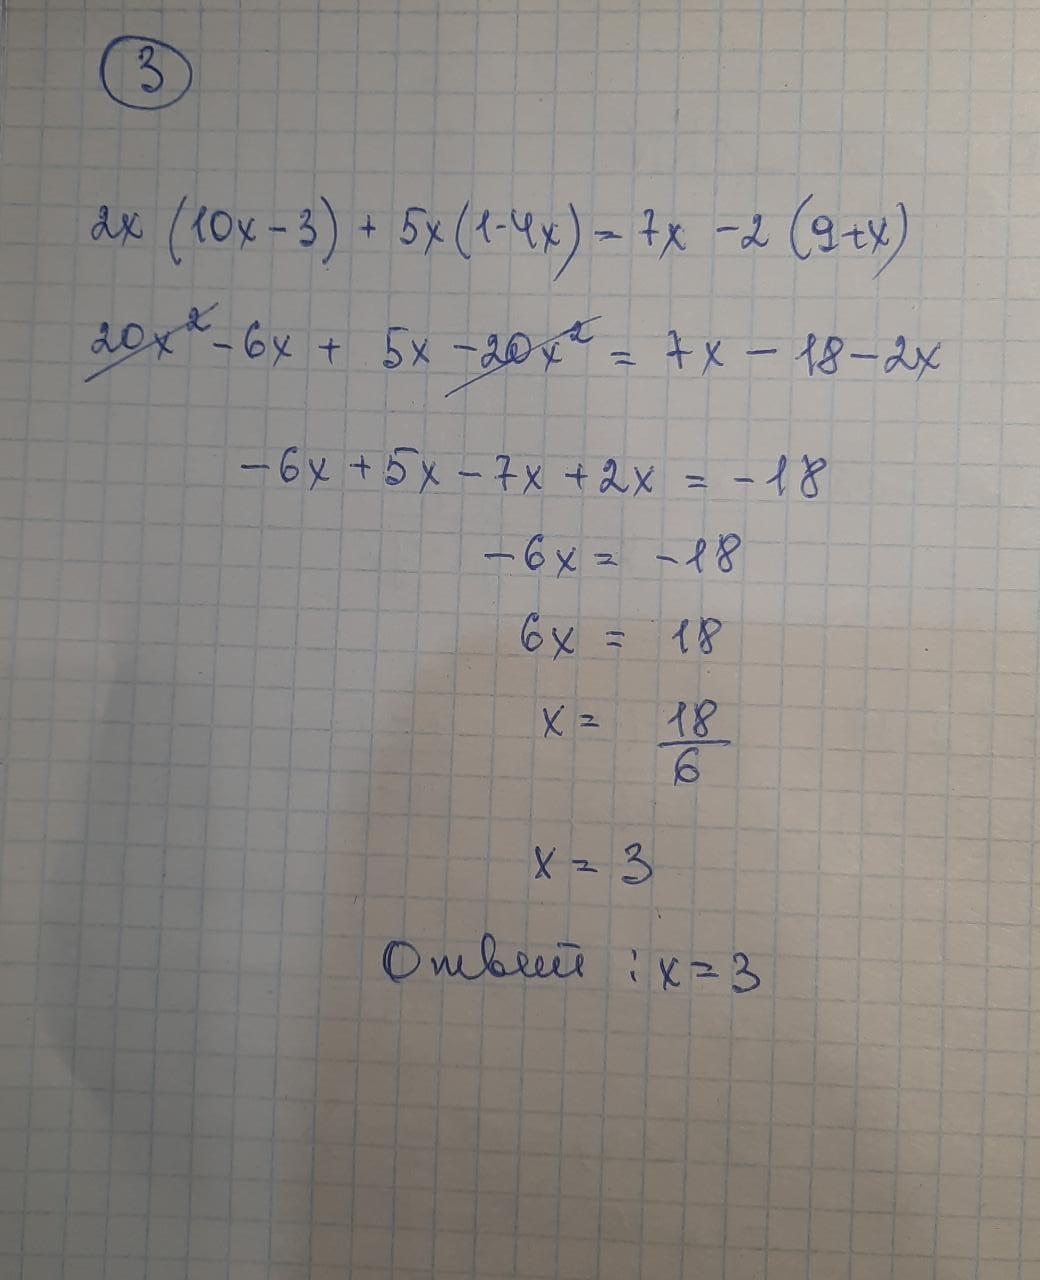 3
2x (10x-3) + 5x (1-4x) = 7x -2 (9+x)
20x² - 6x + 5x - 20x² = 7x - 18 - 2x
-6x + 5x - 7x + 2x = -18
-6x = -18
6x = 18
x = 18/6
x = 3
Ответ : x = 3